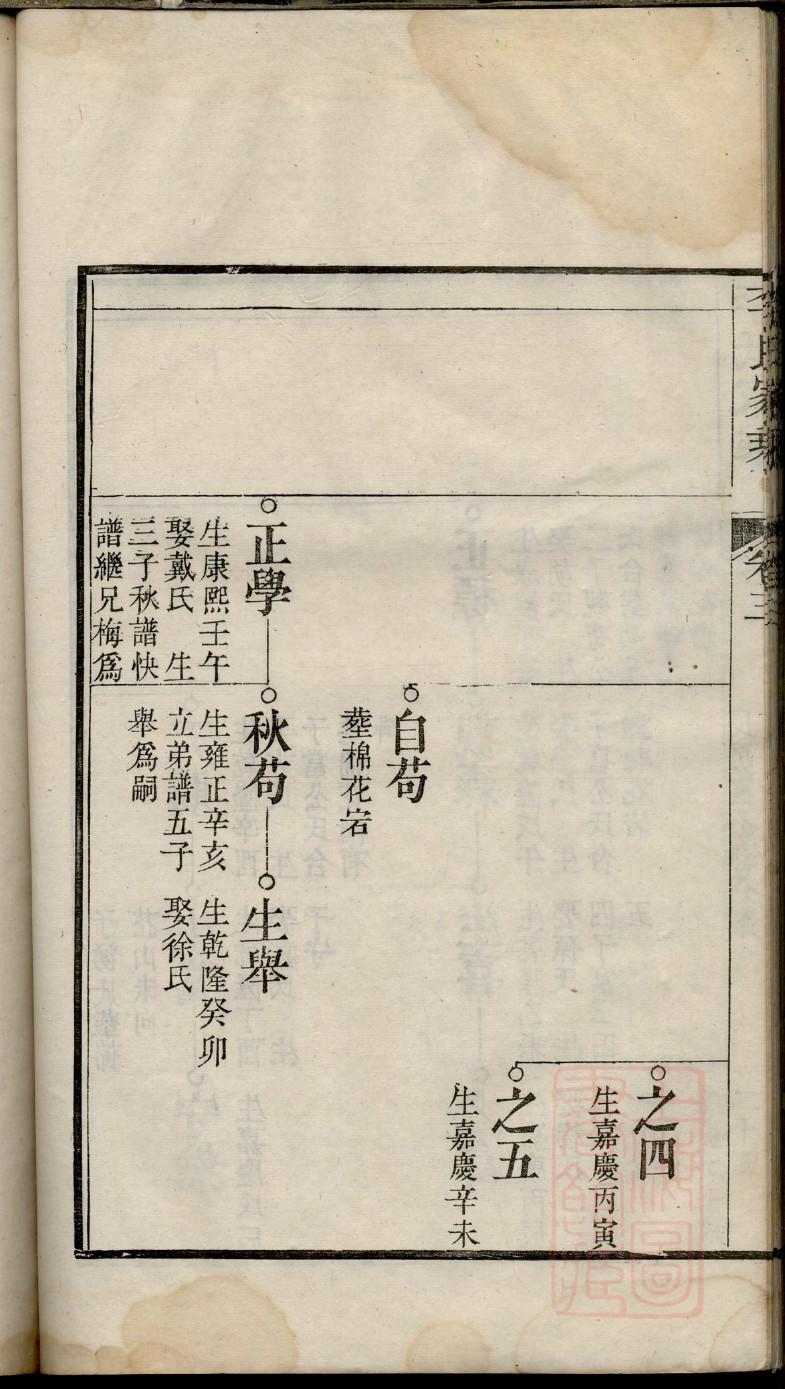 李氏家乘
卷三
之四
生嘉慶丙寅
之五
生嘉慶辛未
自苟
塟棉花宕
正學
生康熙壬午
娶戴氏 生
三子秋譜快
譜繼兄梅爲
秋苟
生雍正辛亥
立弟譜五子
舉爲嗣
生舉
生乾隆癸卯
娶徐氏